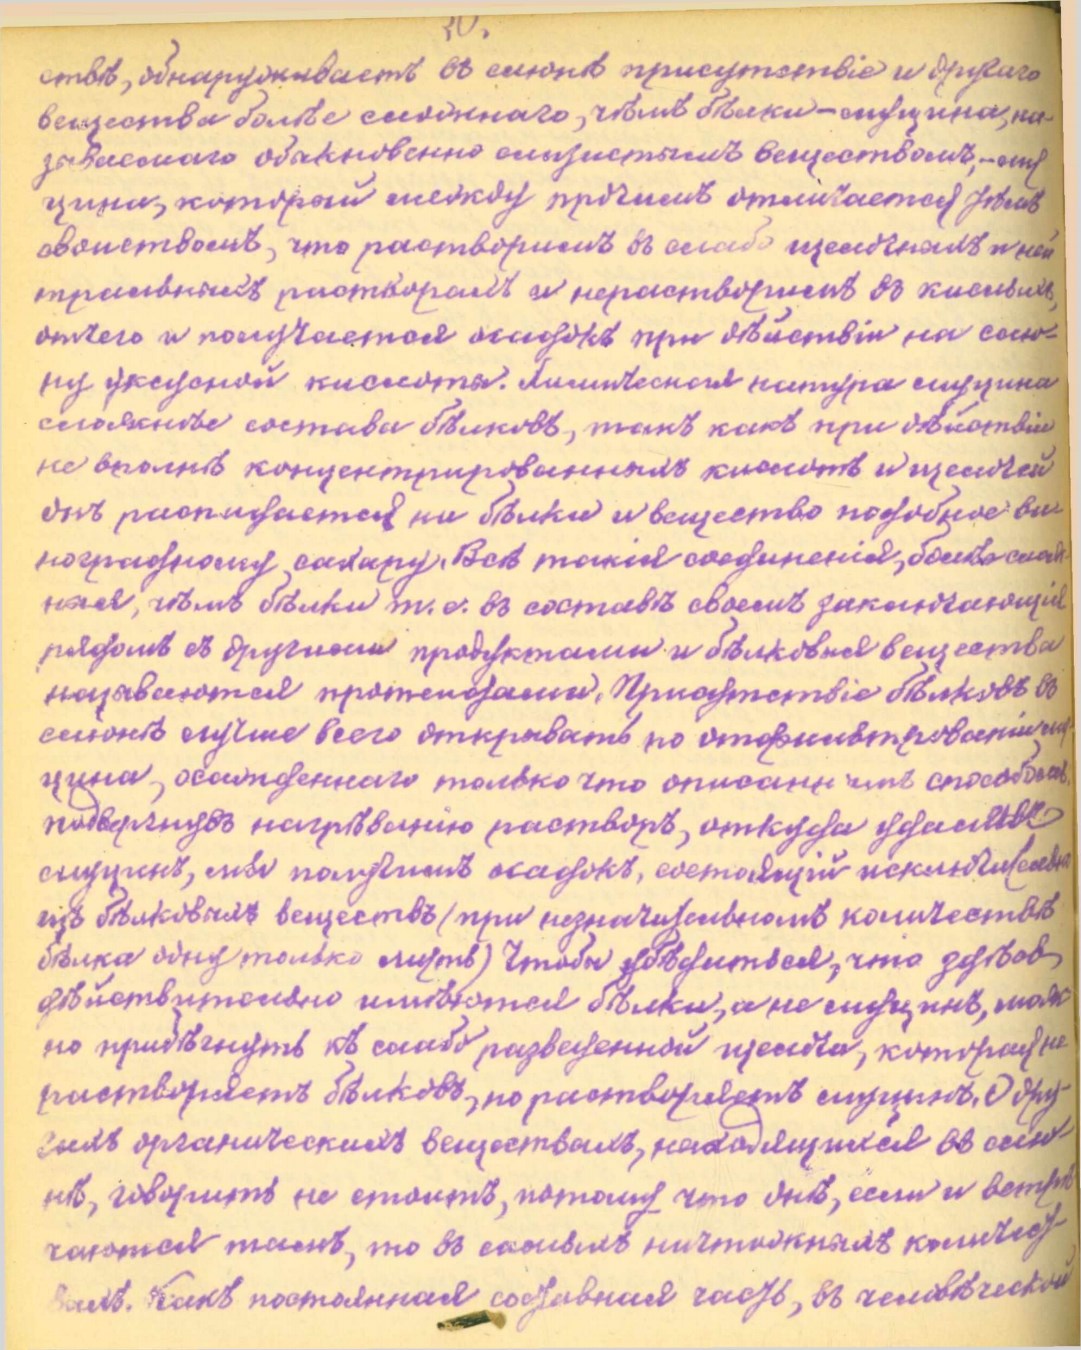 30.
ствѣ, обнаруживаетъ въ слюнѣ присутствіе и другаго
вещества болѣе сложнаго, чѣмъ бѣлки – муцина, на-
зываемаго обыкновенно слизистымъ веществомъ, – му
цина, который между прочимъ отличается тѣмъ
свойствомъ, что растворимъ въ слабо щелочныхъ и ней
тральныхъ растворахъ и нерастворимъ въ кислыхъ,
отчего и получается осадокъ при дѣйствіи на слю-
ну уксусной кислоты. Химическая натура муцина
сложнѣе состава бѣлковъ, такъ какъ при дѣйствіи
не вполнѣ концентрированныхъ кислотъ и щелочей
онъ распадается на бѣлки и вещество подобное ви-
ноградному сахару. Всѣ такія соединенія, болѣе слож-
ныя, чѣмъ бѣлки т.е. въ составѣ своемъ заключающія
рядомъ съ другими продуктами и бѣлковыя вещества
называются протеидами. Присутствіе бѣлковъ въ
слюнѣ лучше всего открывать по отфильтрованіи му-
цина, осажденнаго только что описаннымъ способомъ.
подвергнувъ нагрѣванію растворъ, откуда удаленъ
муцинъ, мы получимъ осадокъ, состоящій исключительно
изъ бѣлковыхъ веществъ (при незначительномъ количествѣ
бѣлка одну только муть) Чтобы убѣдиться, что здѣсь
дѣйствительно имѣются бѣлки, а не муцинъ, мож
но прибѣгнуть къ слабо разведенной щелочи, которая не
растворяетъ бѣлковъ, но растворяетъ муцинъ. О дру-
гихъ органическихъ веществахъ, находящихся въ слю-
нѣ, говорить не стоитъ, потому что онѣ, если и встрѣ
чаются тамъ, то въ самыхъ ничтожныхъ количест-
вахъ. Какъ постоянная составная часть, въ человѣческой